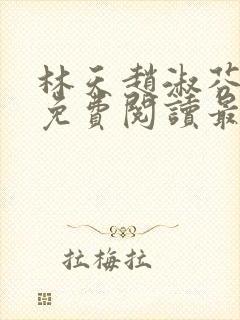 林天趙淑芬
免費閱讀最
拉梅拉